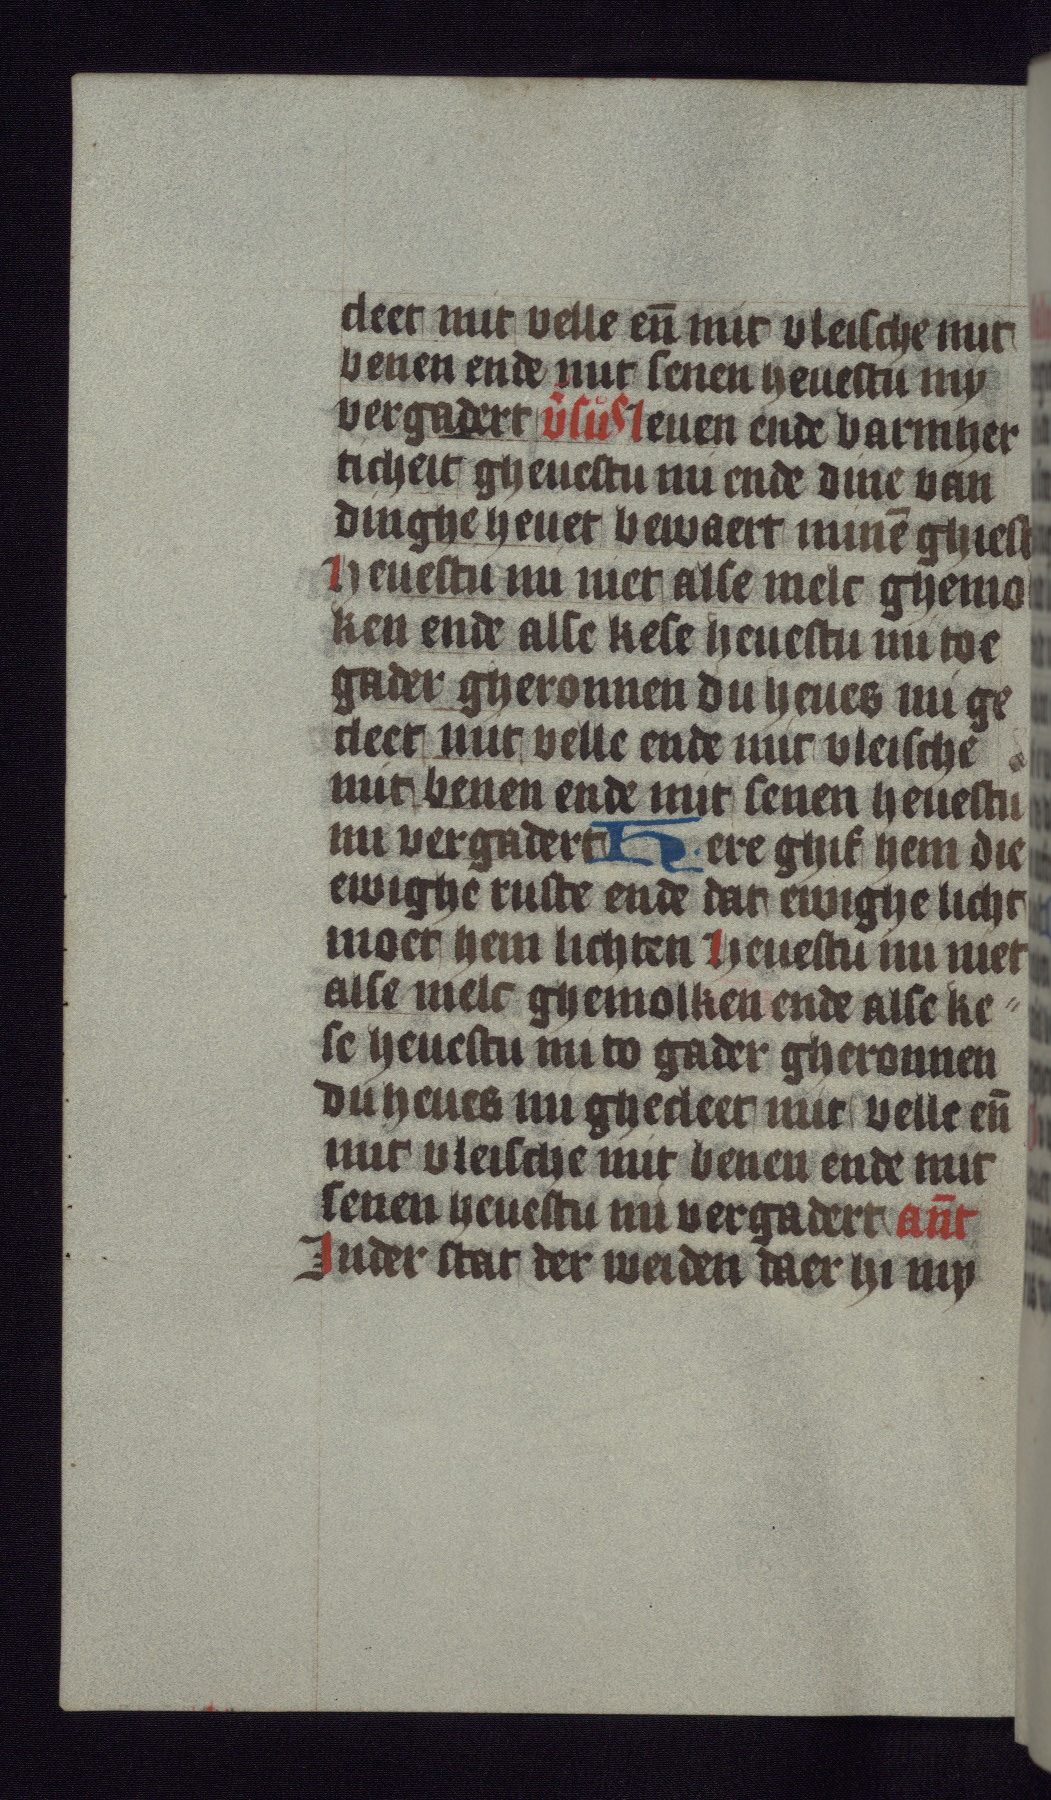 cleet mit velle eñ mit vleische mit
benen ende mit senen heuestu my
vergadert v̄sus leuen ende barmher
ticheit gheuestu mi ende dine van
dinghe heuet bewaert minē ghiest
Heuestu mi niet alse melc ghemo
ken ende alse kese heuestu mi toe
gader gheronnen du heues mi ge
cleet mit velle ende mit vleische
mit benen ende mit senen heuestu
mi vergadert Here ghif hem die
ewighe ruste ende dat ewighe licht
moet hem lichten Heuestu mi niet
alse melc ghemolken ende alse ke〃
se heuestu mi to gader gheronnen
du heues mi ghecleet mit velle eñ
mit vleische mit benen ende mit
senen heuestu mi vergadert añt
In der stat der weiden daer hi my